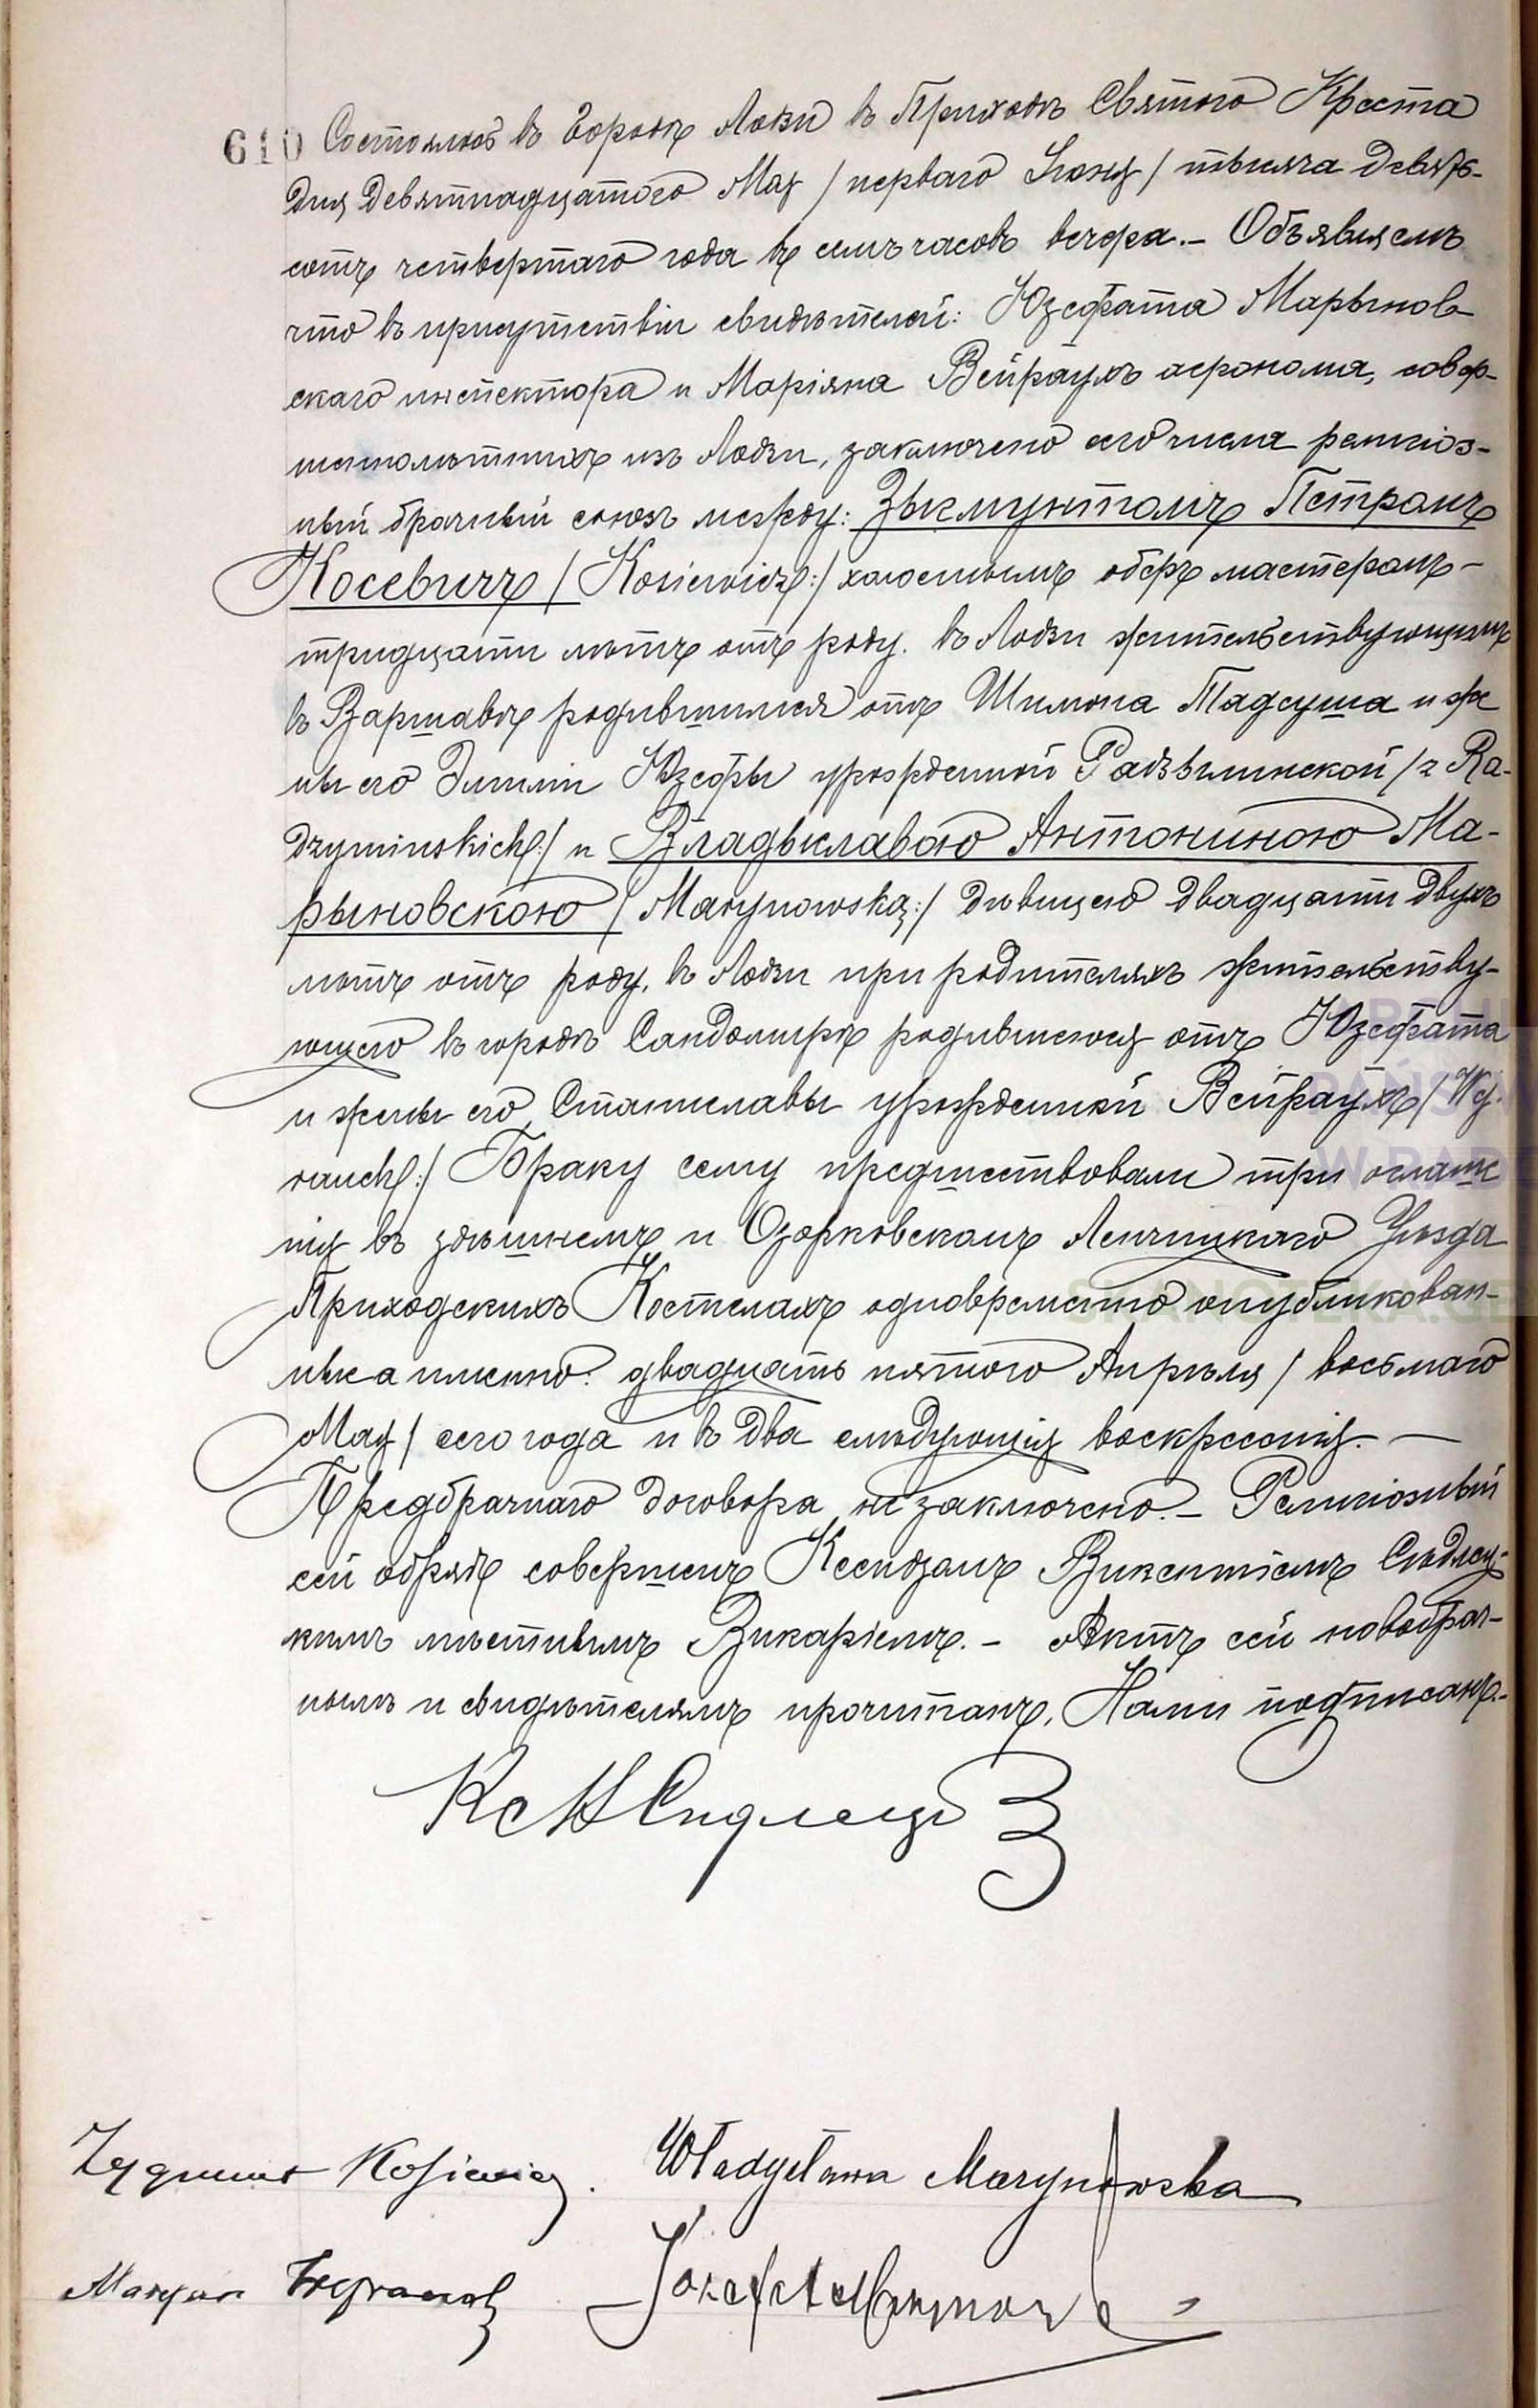 610 Состоялось въ Городѣ Лодзи въ Приходѣ Святого Креста
дня девятнадцатого Мая / перваго Іюня / тысяча девять-
сотъ четвертаго года въ семь часовъ вечера. – Объявляемъ
что въ присутствіи свидѣтелей: Юзефата Марынов-
скаго инспектора и Маріяна Вейраухъ агронома, совер-
шеннолѣтнихъ изъ Лодзи, заключено сего числа религіоз-
ный брачный союзъ между: Зыгмунтомъ Петромъ
Косевичъ / Kosiewicz:/ холостымъ оберъ мастеромъ –
тридцати лѣтъ отъ роду. въ Лодзи жительствующимъ
въ Варшавѣ родившимся отъ Шимона Тадеуша и же
ны его Эмиліи Юзефы урожденной Радзыминской / z Ra-
dzyminskich:/ и Владыславою Антониною Ма-
рыновскою / Marynowską:/ дѣвицею двадцати двухъ
лѣтъ отъ роду, въ Лодзи при родителяхъ жительству-
ющею въ городѣ Сандомирѣ родившеюся отъ Юзефата
и жены его Станиславы урожденной Вейраухъ / Wey-
rauch:/ Браку сему предшествовали три оглаше
нія въ здѣшнемъ и Озорковскомъ Ленчицкаго Уѣзда
Приходскихъ Костелахъ одновременно опубликован-
ныя а именно: двадцать пятого Апрѣля / восьмаго
Мая / сего года и въ два слѣдующія воскресенія. –
Предбрачнаго договора не заключено. – Религіозный
сей обрядъ совершенъ Ксендзомъ Викентіемъ Сѣдлец-
кимъ мѣстнымъ Викаріемъ. – Актъ сей новобрач-
нымъ и свидѣтелямъ прочитанъ, Нами подписанъ. –
Zygmunt Kosiewicz. Władysława Marynowska
Maryan Weyrauch
SKANOTEKA.GE